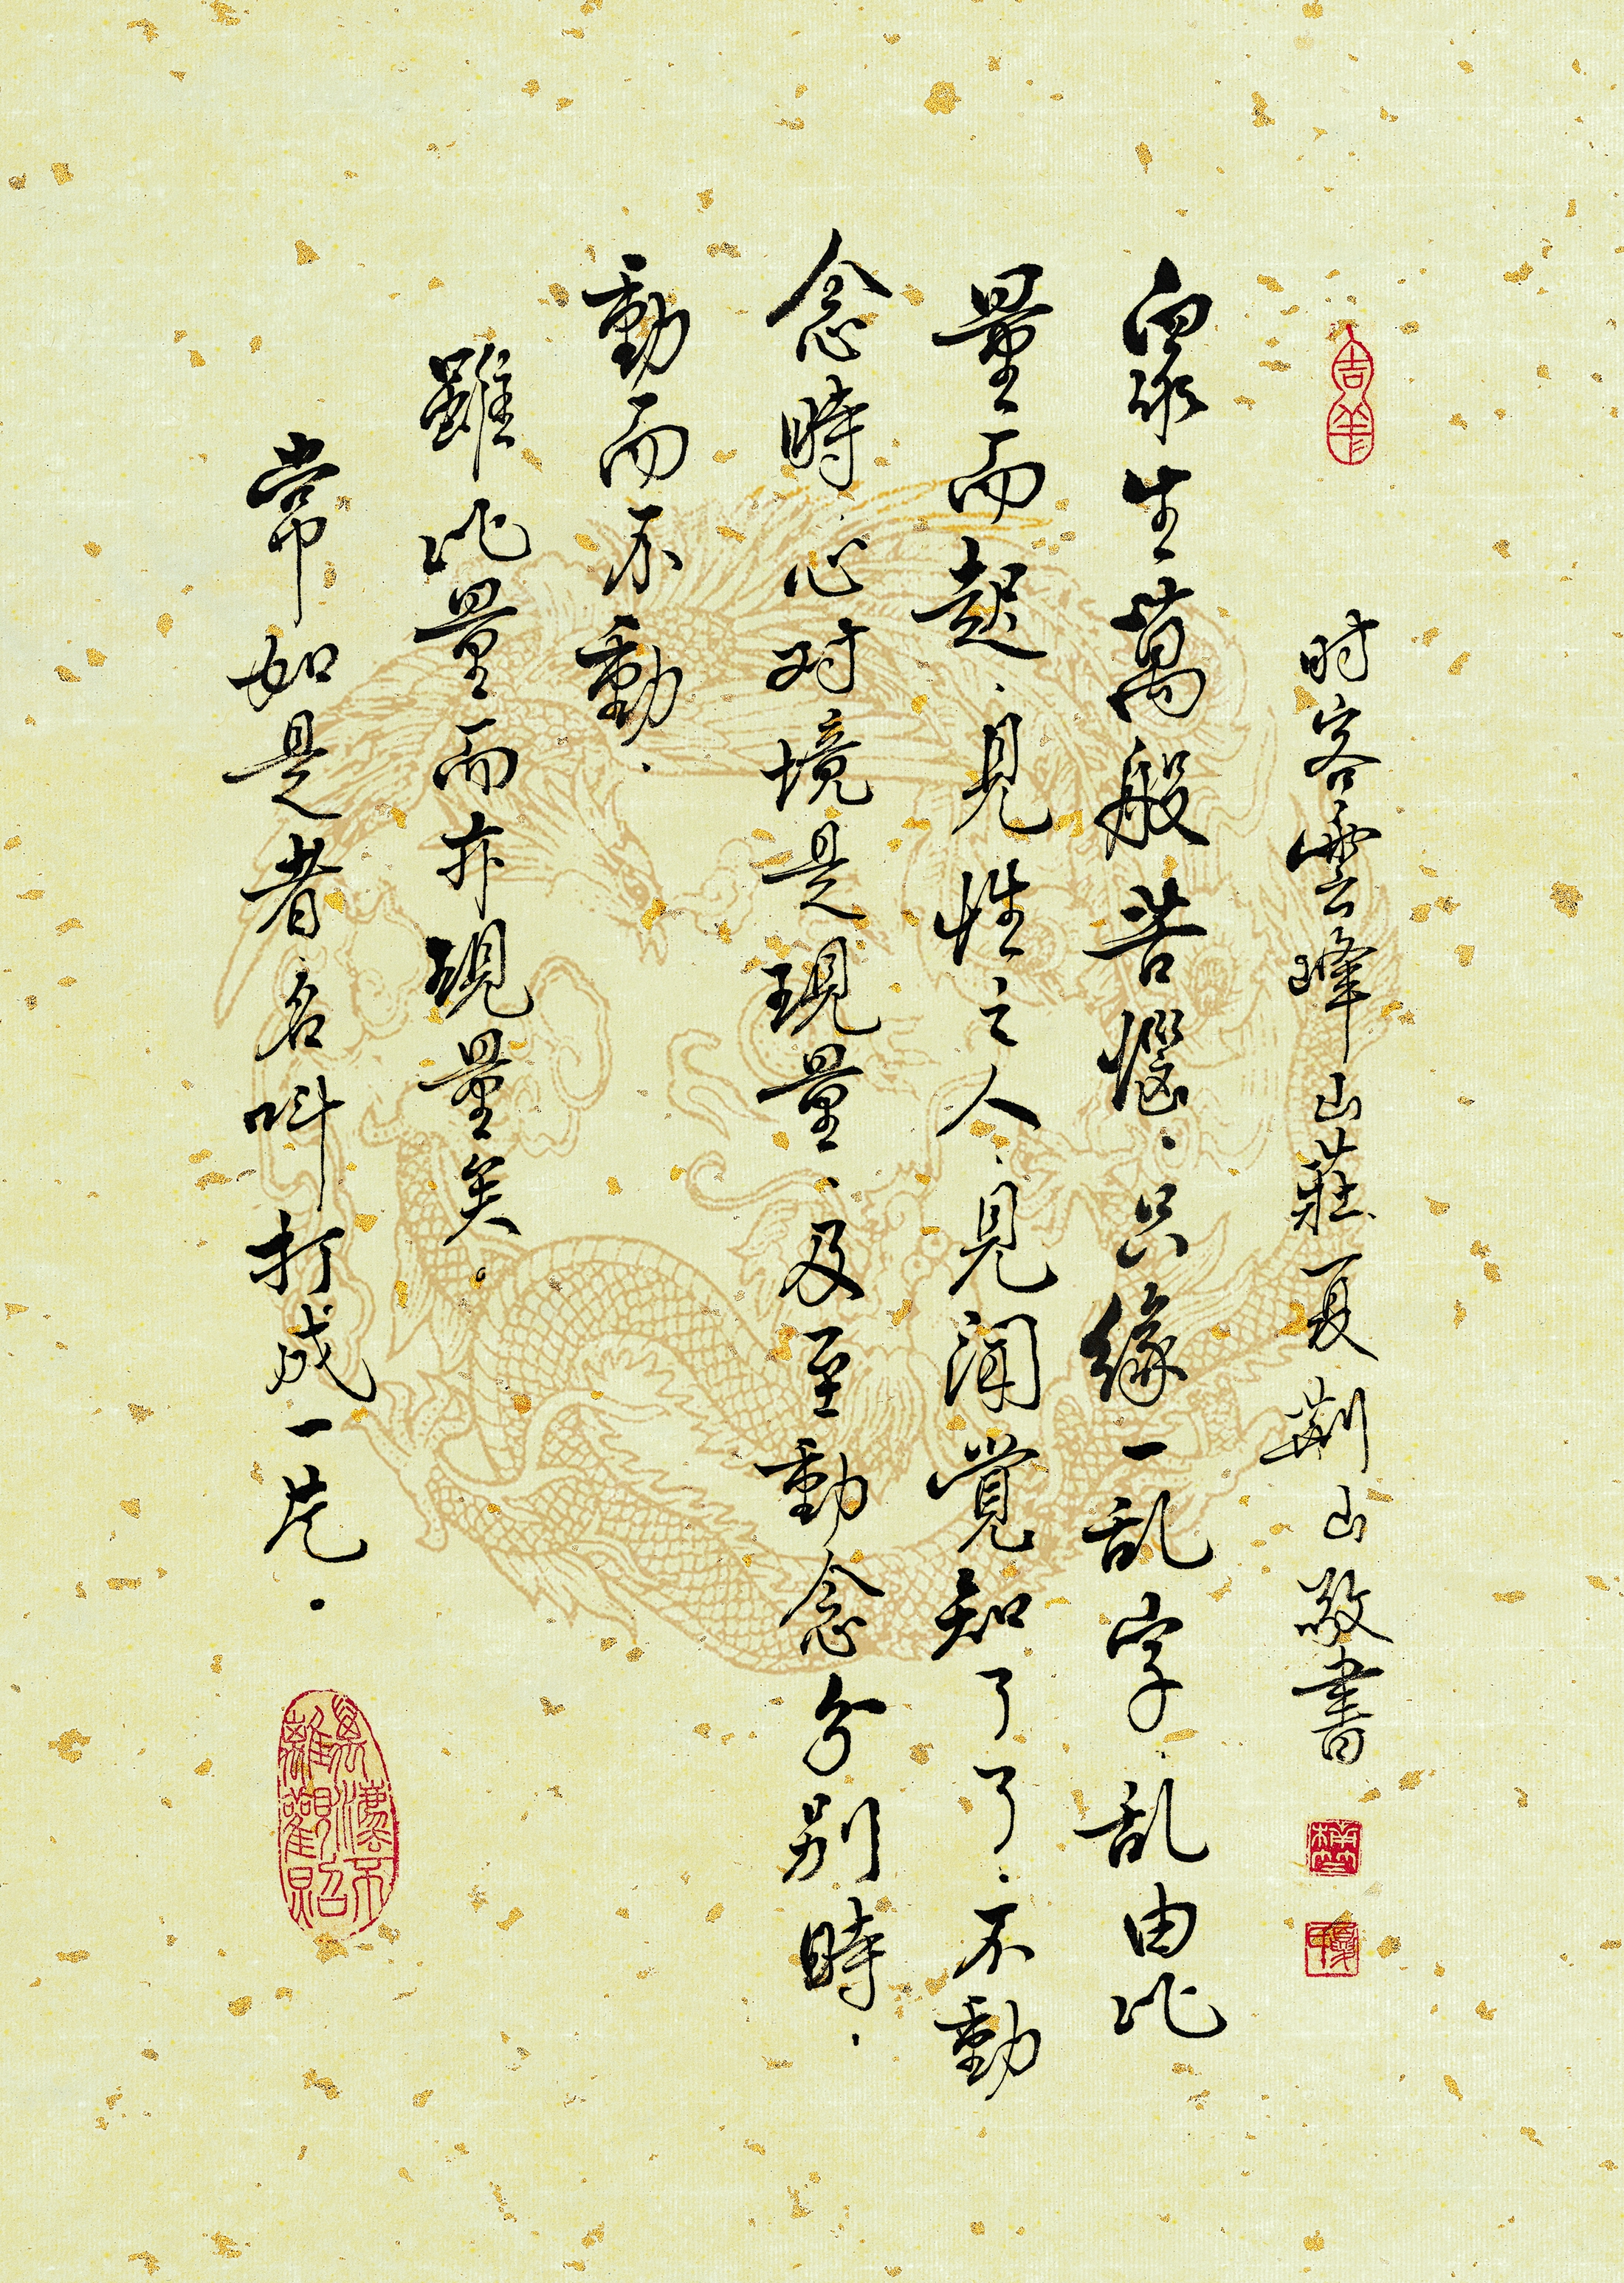 时客雲峰山莊夏荆山敬書
眾生萬般苦惱．只緣一乱字．乱由比
量而起．見性之人．見聞覺知了了．不動
念時．心对境是現量．及至動念分别時．
動而不動．
雖比量而亦現量矣。
常如是者名叫打成一片．